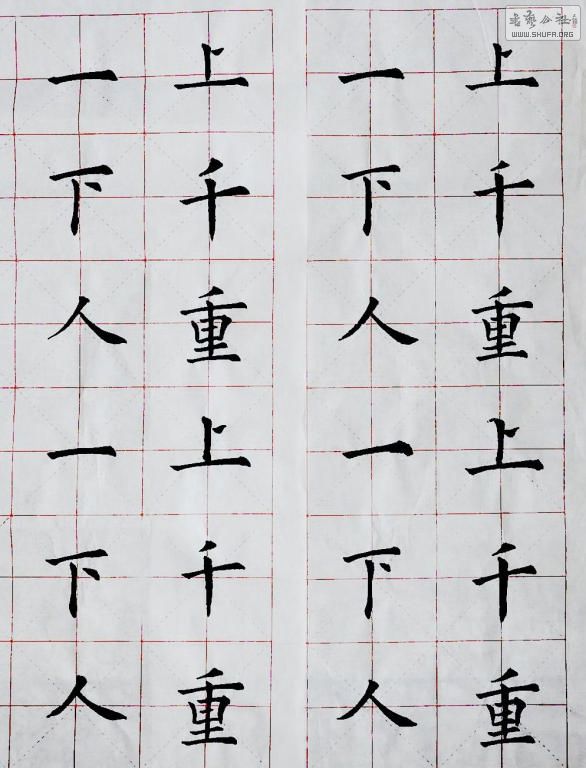 上千重上千重
一下人一下人
上千重上千重
一下人一下人
WWW.SHUFA.ORG